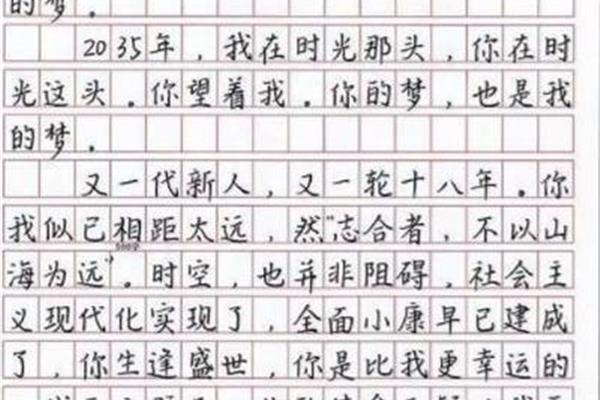 的梦.
2035年，我在时光那头，你在时
光这头.你望着我.你的梦，也是我
的梦.
又一代新人，又一轮十八年.你
我似已相距太远，然"志合者，不以山
500字
海为远".时空，也并非阻碍，社会主
义现代化实现了，全面小康早已建成
了，你生逢盛世，你是比我更幸运的